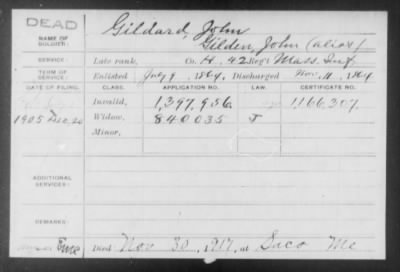 DEAD
NAME OF SOLDIER: Gildard, John
Gilden, John (alias)
SERVICE: Late rank, Co. H, 42 Reg't Mass. Inf.
TERM OF SERVICE: Enlisted July 9, 1864, Discharged Nov. 11, 1864
DATE OF FILING. CLASS. APPLICATION NO. LAW. CERTIFICATE NO.
Invalid, 1,397,956. 1,166,307.
1905 Dec. 20 Widow, 840035 J
Minor,
ADDITIONAL SERVICES:
REMARKS:
Died Nov 30, 1917, at Saco Me